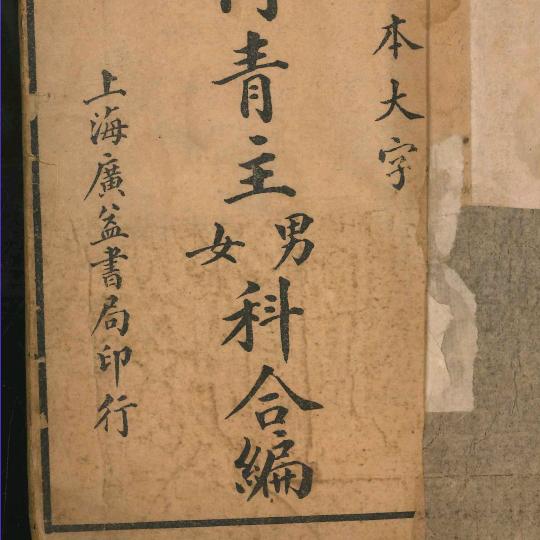 本大字
青主男女科合編
上海廣益書局印行